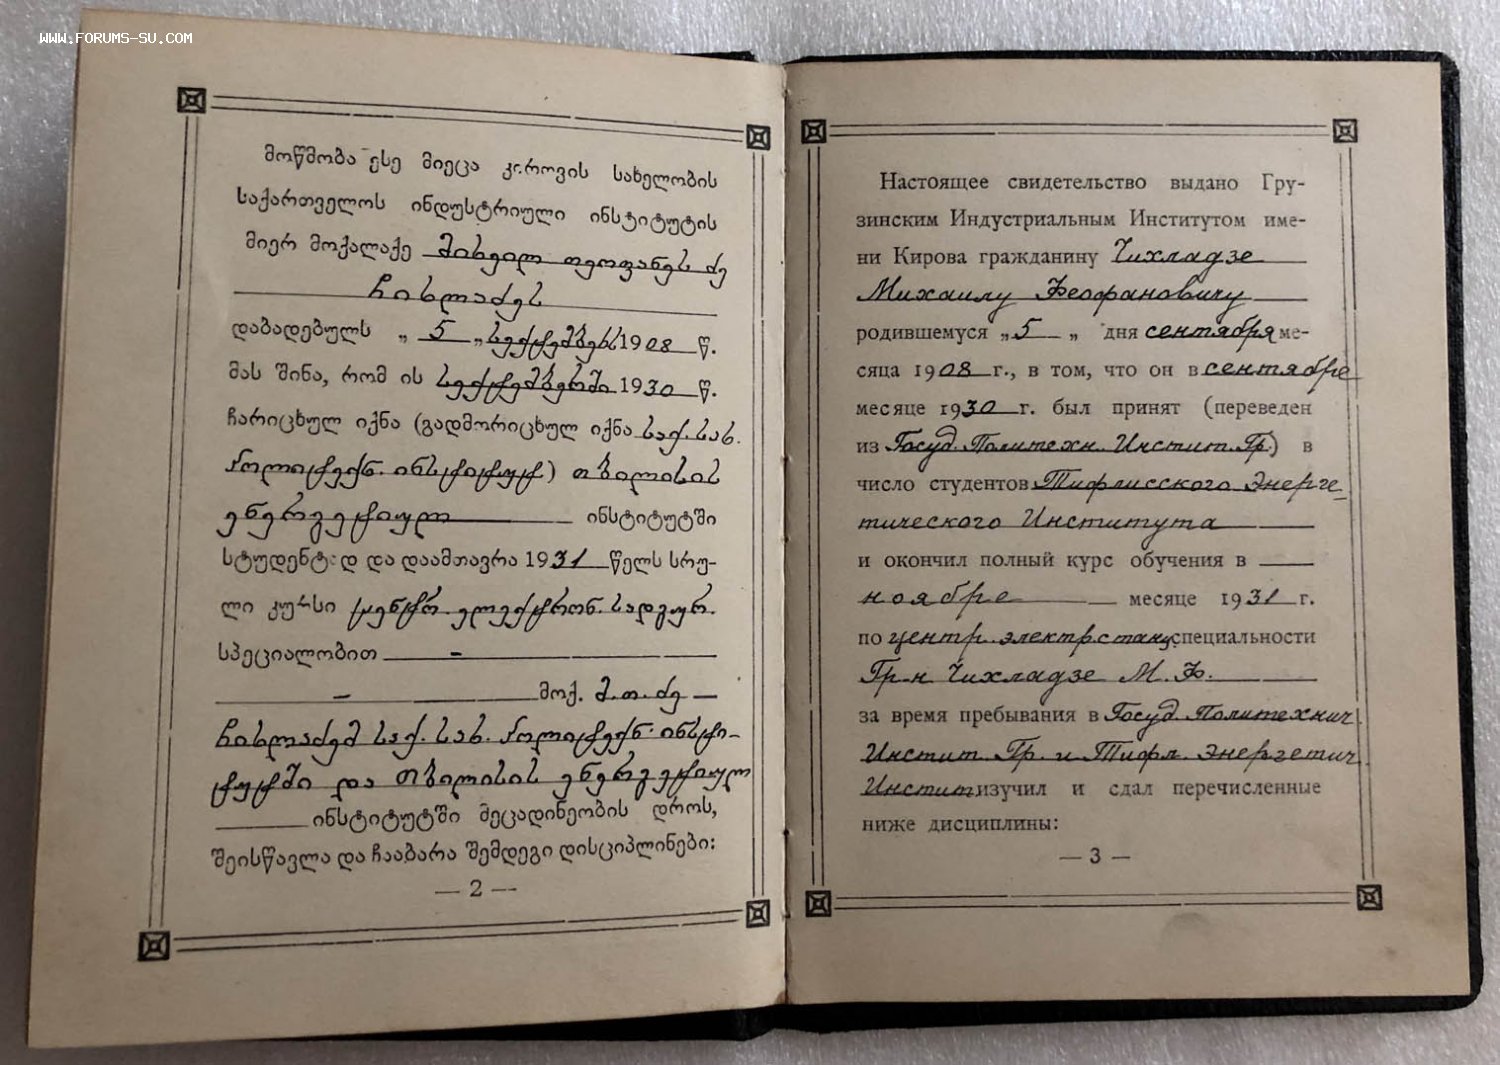 WWW.FORUMS-SU.COM
მოწმობა ესე მიეცა კიროვის სახელობის
საქართველოს ინდუსტრიული ინსტიტუტის
მიერ მოქალაქე მიხეილ თეოფანეს ძე
ჩიხლაძეს
დაბადებულს „ 5 „ სექტემბერს 1908 წ.
მას შინა, რომ ის სექტემბერში 1930 წ.
ჩარიცხულ იქნა (გადმორიცხულ იქნა საქ. სახ.
პოლიტექნ. ინსტიტუტ.) თბილისის
ენერგეტიულ ინსტიტუტში
სტუდენტად და დაამთავრა 1931 წელს სრუ-
ლი კურსი ცენტრ. ელექტრონ. სადგურ.
სპეციალობით —
— მოქ. მ. თ. ძე —
ჩიხლაძემ საქ. სახ. პოლიტექნ. ინსტი-
ტუტში და თბილისის ენერგეტიულ
ინსტიტუტში მეცადინეობის დროს,
შეისწავლა და ჩააბარა შემდეგი დისციპლინები:
— 2 —
Настоящее свидетельство выдано Гру-
зинским Индустриальным Институтом име-
ни Кирова гражданину Чихладзе
Михаилу Феофановичу
родившемуся „5 „ дня сентября ме-
сяца 1908 г., в том, что он в сентябре
месяце 1930 г. был принят (переведен
из Госуд. Политехн. Инстит. Гр.) в
число студентов Тифлисского Энерге-
тического Института
и окончил полный курс обучения в
ноябре месяце 1931 г.
по центр. электр. станц. специальности
Гр-н Чихладзе М. Ф.
за время пребывания в Госуд. Политехнич.
Инстит. Гр. и Тифл. Энергетич.
Инстит. изучил и сдал перечисленные
ниже дисциплины:
— 3 —